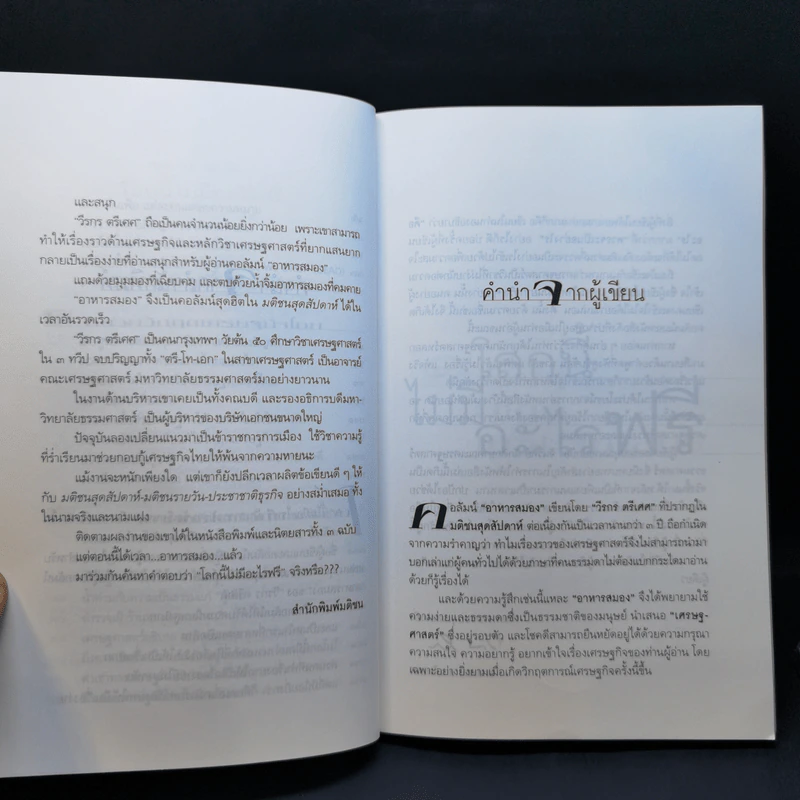 และสนุก
"วีรกร ตรีเศศ" ถือเป็นคนจำนวนน้อยยิ่งกว่าน้อย เพราะเขาสามารถ
ทำให้เรื่องราวด้านเศรษฐกิจและหลักวิชาเศรษฐศาสตร์ที่ยากแสนยาก
กลายเป็นเรื่องง่ายที่อ่านสนุกสำหรับผู้อ่านคอลัมน์ "อาหารสมอง"
แถมด้วยมุมมองที่เฉียบคม และตบด้วยน้ำจิ้มอารมณ์ที่คมคาย
"อาหารสมอง" จึงเป็นคอลัมน์สุดฮิตใน มติชนสุดสัปดาห์ ได้ใน
เวลาอันรวดเร็ว
"วีรกร ตรีเศศ" เป็นคนกรุงเทพฯ วัยต้น ๕๐ ศึกษาวิชาเศรษฐศาสตร์
ใน ๓ ทวีป จบปริญญาทั้ง "ตรี-โท-เอก" ในสาขาเศรษฐศาสตร์ เป็นอาจารย์
คณะเศรษฐศาสตร์ มหาวิทยาลัยธรรมศาสตร์มาอย่างยาวนาน
ในงานด้านบริหารเขาเคยเป็นทั้งคณบดี และรองอธิการบดีมหา-
วิทยาลัยธรรมศาสตร์ เป็นผู้บริหารของบริษัทเอกชนขนาดใหญ่
ปัจจุบันลองเปลี่ยนแนวมาเป็นข้าราชการการเมือง ใช้วิชาความรู้
ที่ร่ำเรียนมาช่วยกอบกู้เศรษฐกิจไทยให้พ้นจากความหายนะ
แม้งานจะหนักเพียงใด แต่เขาก็ยังปลีกเวลาผลิตข้อเขียนดี ๆ ให้
กับ มติชนสุดสัปดาห์-มติชนรายวัน-ประชาชาติธุรกิจ อย่างสม่ำเสมอ ทั้ง
ในนามจริงและนามแฝง
ติดตามผลงานของเขาได้ในหนังสือพิมพ์และนิตยสารทั้ง ๓ ฉบับ
แต่ตอนนี้ได้เวลา...อาหารสมอง...แล้ว
มาร่วมกันค้นหาคำตอบว่า "โลกนี้ไม่มีอะไรฟรี" จริงหรือ???
สำนักพิมพ์มติชน
คำนำ จากผู้เขียน
คอลัมน์ "อาหารสมอง" เขียนโดย "วีรกร ตรีเศศ" ที่ปรากฏใน
มติชนสุดสัปดาห์ ต่อเนื่องกันเป็นเวลานานกว่า ๓ ปี ถือกำเนิด
จากความรำคาญว่า ทำไมเรื่องราวของเศรษฐศาสตร์จึงไม่สามารถนำมา
บอกเล่าแก่ผู้คนทั่วไปได้ด้วยภาษาที่คนธรรมดาไม่ต้องแบกกระไดมาอ่าน
ก็รู้เรื่องได้
และด้วยความรู้สึกเช่นนี้แหละ "อาหารสมอง" จึงได้พยายามใช้
ความง่ายและธรรมดาซึ่งเป็นธรรมชาติของมนุษย์ นำเสนอ "เศรษฐ-
ศาสตร์" ซึ่งอยู่รอบตัว และโชคดีสามารถยืนหยัดอยู่ได้ด้วยความกรุณา
ความสนใจ ความอยากรู้ อยากเข้าใจเรื่องเศรษฐกิจของท่านผู้อ่าน โดย
เฉพาะอย่างยิ่งยามเมื่อเกิดวิกฤตการณ์เศรษฐกิจครั้งนี้ขึ้น